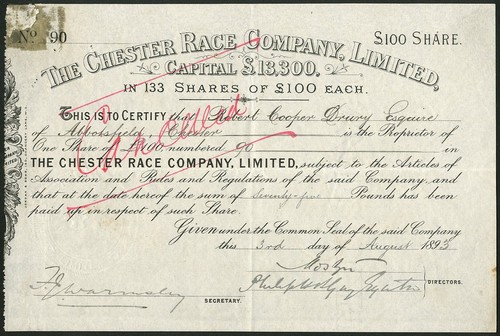 No 90 £100 SHARE.
THE CHESTER RACE COMPANY, LIMITED,
CAPITAL £13,300.
IN 133 SHARES OF £100 EACH.
Cancelled
THIS IS TO CERTIFY that Robert Cooper Drury Esquire
of Abbotsfield Chester is the Proprietor of
One Share of £100 numbered 90 in
THE CHESTER RACE COMPANY, LIMITED, subject to the Articles of
Association and Rules and Regulations of the said Company, and
that at the date hereof the sum of Seventy-five Pounds has been
paid up in respect of such Share.
Given under the Common Seal of the said Company
this 3rd day of August 1893
Mostyn
DIRECTORS.
SECRETARY.